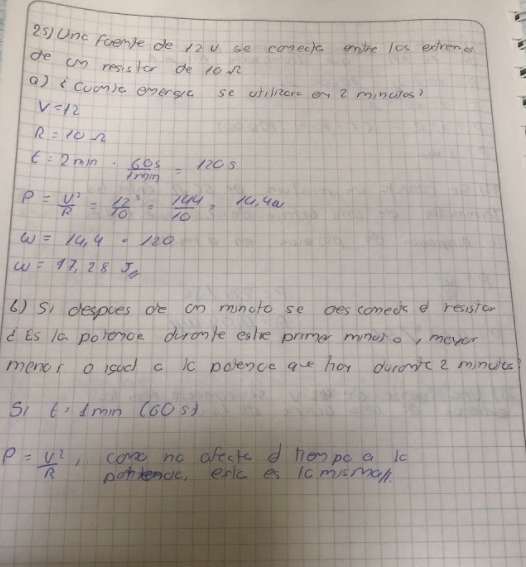 25) Una fuente de 12 V se conecta entre los extremos
de un resistor de 10 Ω
a) ¿Cuánta energía se utilizara en 2 minutos?
V = 12
R = 10 Ω
t = 2 min · 60s/1min = 120 s
P = V²/R = 12²/10 = 144/10 = 14,4w
w = 14,4 · 120
w = 17,28 J//
b) Si despues de un minuto se desconecta el resistor
¿Es la potencia durante este primer minuto, mayor
menor o igual a la potencia que hay durante 2 minutos?
Si t = 1 min (60 s)
P = V²/R, como no afecta el tiempo a la
potencia, esta es la misma//.